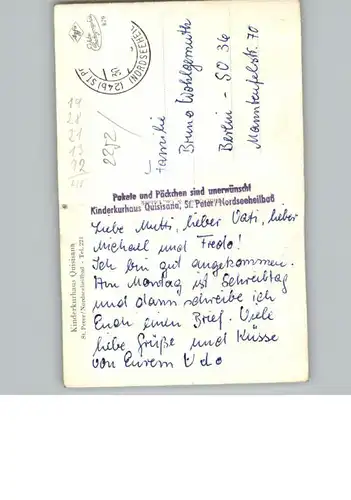 Agfa
(24b) ST. PETER
(NORDSEEHEILBAD)
19
24
21
13
22
2272/
Familie
Bruno Wohlgemuth
Berlin - SO 36
Manteufelstr. 70
Pakete und Päckchen sind unerwünscht
Kinderkurhaus Quisisana, St. Peter/Nordseeheilbad
Liebe Mutti, lieber Vati, lieber
Michael und Fredo!
Ich bin gut angekommen.
Am Montag ist Schreibtag
und dann schreibe ich
Euch einen Brief. Viele
liebe Grüße und Küsse
von Eurem Udo
Kinderkurhaus Quisisana
St. Peter/Nordseeheilbad - Tel. 221